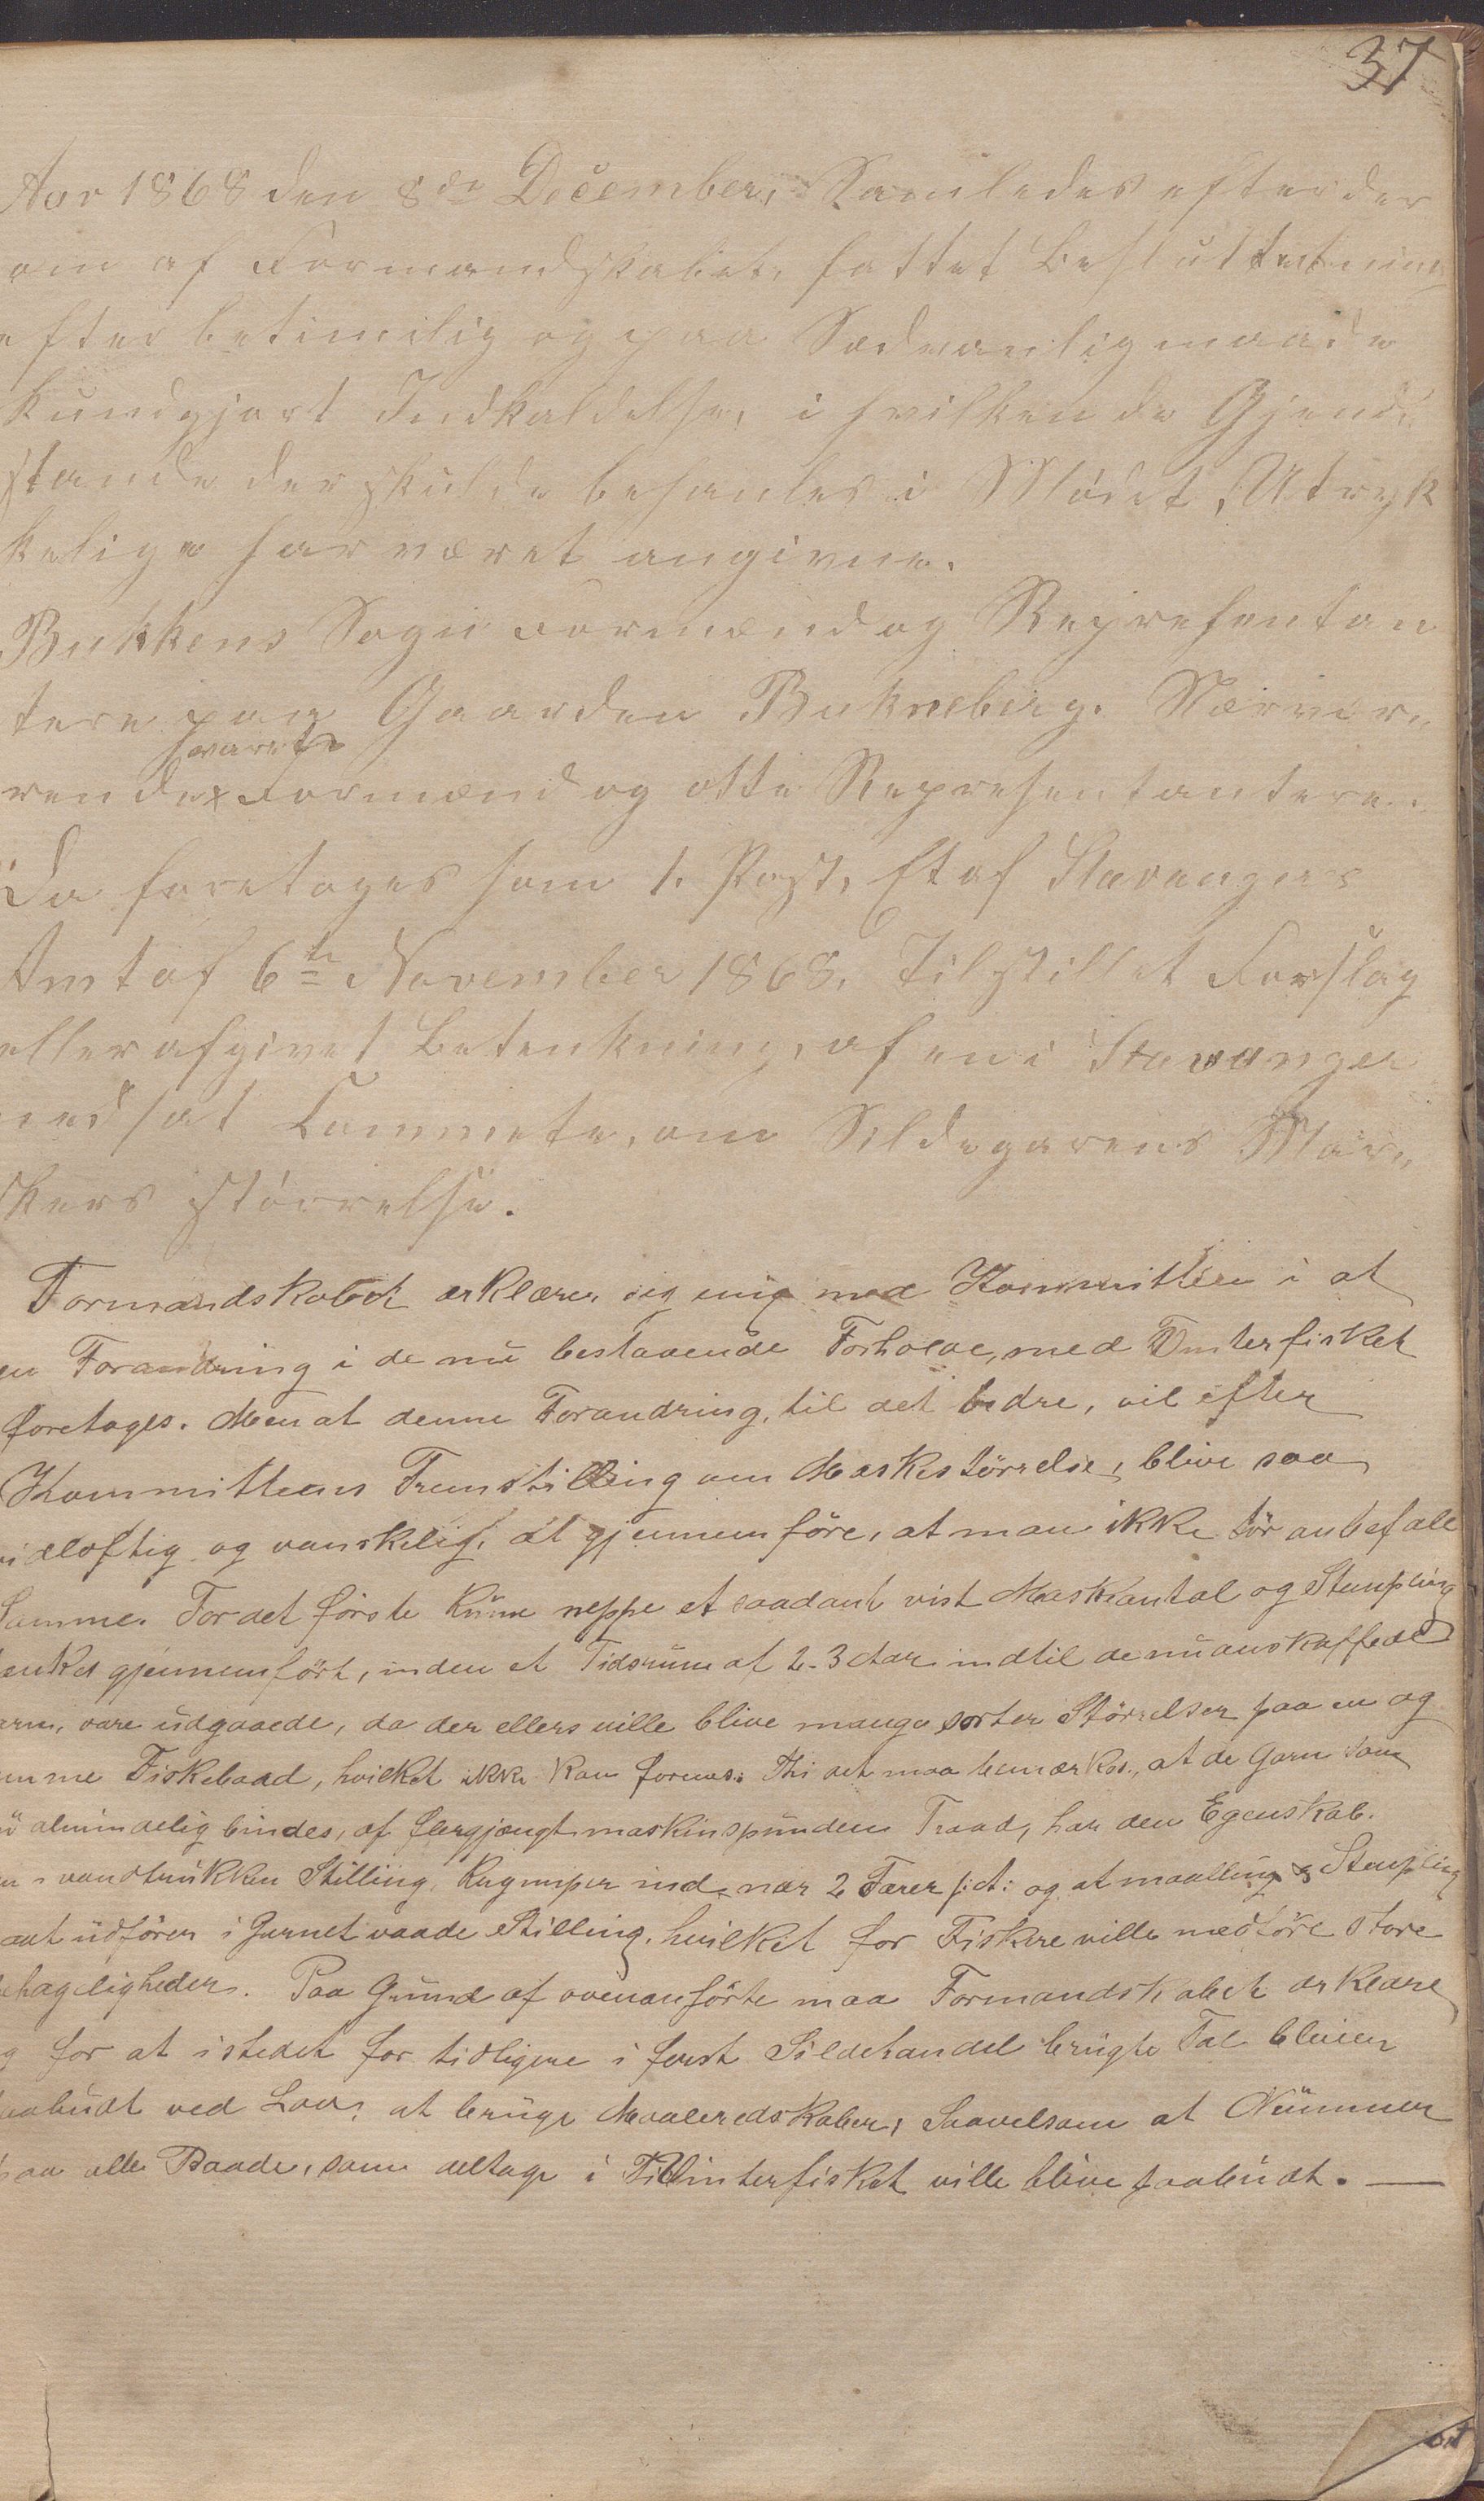 37
Aar 1868 den 8de December, Samledes efter der
om af Formandskabet, fattet Besluttetning
efter betimilig og paa Sædvanlig maade
kundgjort Indkaldelse, i hvilken de Gjend,,
stande der skulde behanles i Mødet, Utryk
kelige har været angivne.
Bukkens Sogn Formænd og Represæntan
tere paa Gaarden Bukneberg. Nærvær,,
svarafe
rende x Formænd og otte Represæntantere.
Da foretoges som 1. Post, Et af Stavangers
Amt af 6te November 1868, Tilstillet Forslag
eller afgivet Betenkning, af en i Stavanger
nedsat Commete, om Sildegarens Mas,,
kers Størrelse.
Formandskabet erklærer sig enig med Kommitteen i at
en Forandring i de nu bestaaende Forholde, med Vinterfisket
foretages. Men at denne Forandring, til det bedre, vil efter
Kommitteens Fremstilling om Maskestörrelse, blive saa
vidløftig og vanskelig, at gjennemföre, at man ikke tör anbefale
Samme. For det förste kunne neppe et saadant vist Maskeantal og Stempling
tænkes gjennemfört, inden et Tidsrum af 2-3 Aar indtil de nu anskaffede
arn, vare udgaaede, da der ellers ville blive mange sorter Störrelser paa en og
amme Fiskebaad, hvilket ikke kan forenes. Thi det maa bemærkes, at de Garn som
nu almindelig bindes, af flergjængt maskinspunden Traad, har den Egenskab.
en vandtrukken Stilling, krymper ind, nær 2 Farer p:ct: og at maalling og Stempling
ant udfören i Garnet vaade Stilling, hvilket for Fiskere ville medföre store
ehageligheder. Paa Grund af ovenanförte maa Formandskabet erklære
g for at istedet for tidligere i fersk Sildehandel brugte Tal bleven
aabudt ved Lov, at bruge Maaleredskaber, Saavelsom at Nummer
paa alle Baade, som deltage i Vinterfisket ville blive paabudt. —